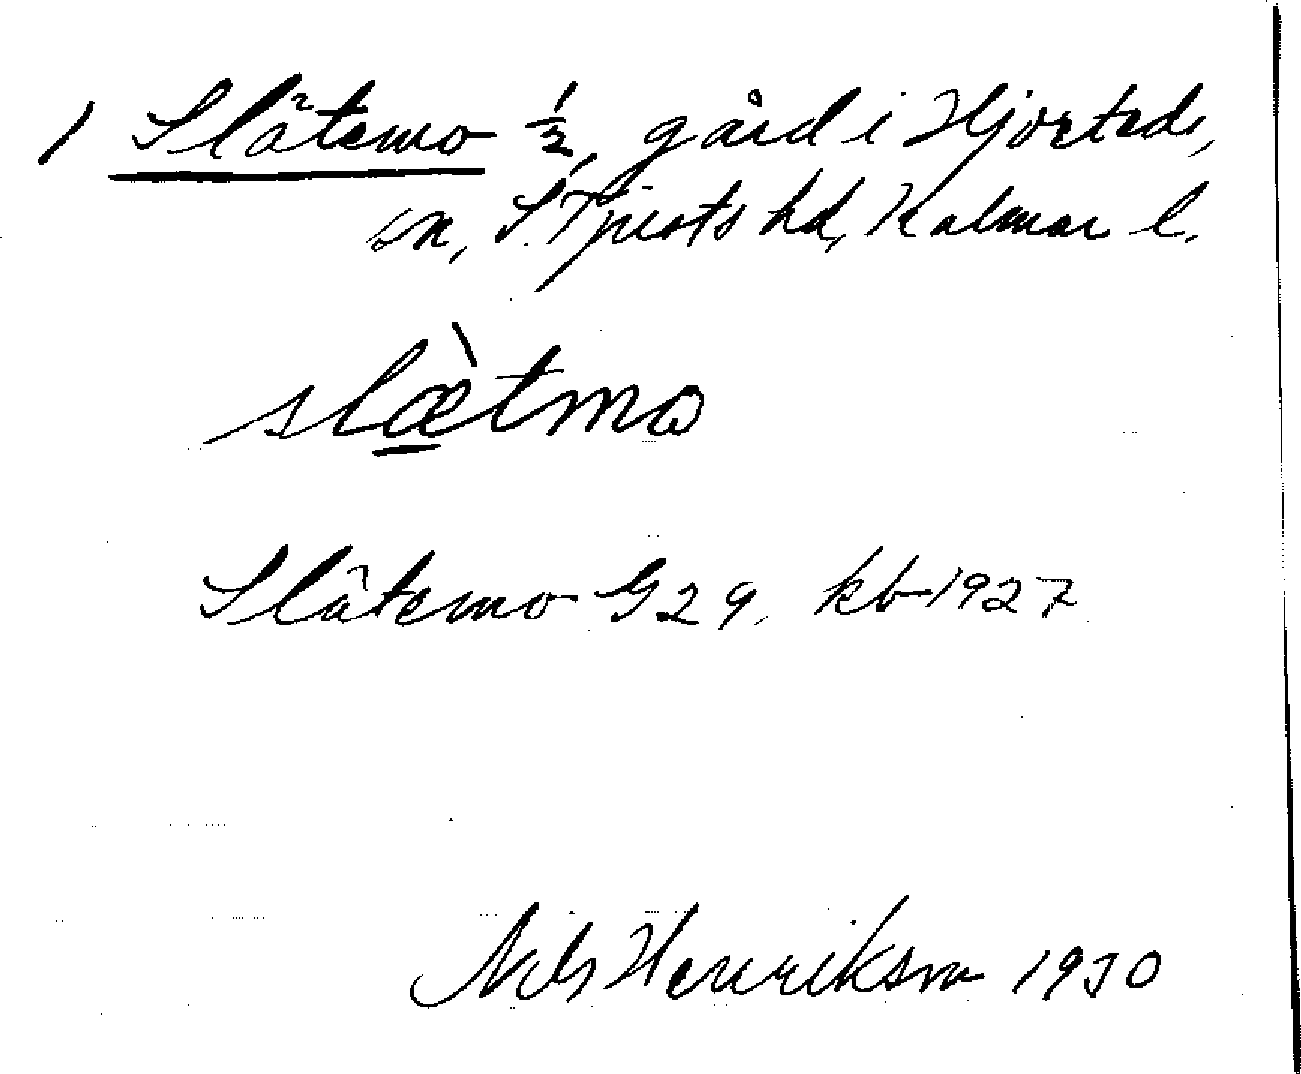 1 Slätemo ½, gård i Hjorteds,
sn, S. Tjusts hd, Kalmar l.
slæ̀tmo
Slätemo G29, kb 1927
Nils Henrikson 1930